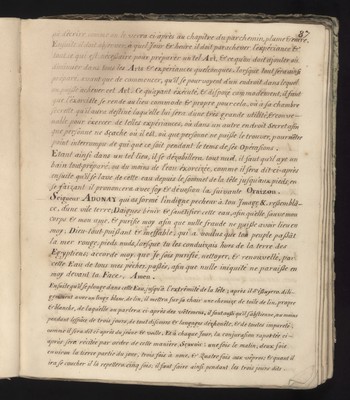 87
où décrire comme on le verra ci après au chapitre du parchemin, plume & encre,
Ensuite il doit sçavoir, à quel Jour & heure il doit parachever l'expérience &
tout ce qui est nécessaire pour préparer un tel Art, & ce qu'on doit ajouter ou
diminuer dans tous les Arts & expériences quelconques, lorsque tout sera ainsi
préparé, avant que de commencer, qu'il se pourvoyent d'un endroit dans lequel
on puisse achever cet Art. Ce qu'ayant éxécuté, & disposé commodément, il faut
que l'exorciste se rende au lieu commode & propre pour cela, où à sa chambre
secrete qu'à autre destiné laquelle lui sera d'une fort grande utilité &
pour exercer de telles expériences, où dans un autre endroit Secret afin
que personne ne Scache où il est, où que personne ne puisse le trouver, pour n'être
point interrompu de qui que ce soit pendant le tems de ses Opérations.
Etant ainsi dans un tel lieu, il se dépoüillera tout nud. il faut qu'il aye un
bain tout préparé, ou du moins de l'eau Exorcisée, comme il sera dit-ci-après
ensuite qu'il se lave de cette eau depuis le sommet de la tête jusqu'aux pieds, en
se faisant il prononcera avec foy & dévotion la suivante Oraison.
Seigneur ADONAY qui as formé l'indigne pecheur à ton Image & ressemblan-
ce, d'une vile terre, Daignes bénir & sanctifier cette eau, afin qu'elle sauve mon
corps & mon ame, & purifie moy afin que nulle fraude ne puisse avoir lieu en
moy. Dieu tout-puissant & ineffable, qui a voulue que ton peuple passât
la mer rouge, pieds nuds, lorsque tu les conduisois hors de la terre des
Egyptiens; accorde moy que je sois purifié, nettoyé, & renouvellé, par
cette Eau de tous mes pechés, passés, afin que nulle iniquité ne paraisse en
moy devant ta Face. Amen.
Ensuite qu'il se plonge dans cette Eau, jusqu'a l'extrémité de la tête; après il s'essuyera
avec un linge blanc de lin, il mettra sur sa chair une chemise de toile de lin, propre
& blanche, de laquelle on parlera ci après des vêtements, il faut aussi qu'il s'abstienne, au moins
pendant l'espace de trois jours, de tout discours & langages déshonête, & de toutes impuretés,
comme il sera dit ci après du jeûne & veille. Et à chaque Jour, la conjuration rapportée ci-
après sera récitée par ordre de cette manière, Scavoir: une fois le matin, deux fois
environ la tierce partie du jour, trois fois à none, & Quatre fois aux vêpres & quand il
ira se coucher il la repettera cinq fois; il faut faire ainsi pendant les trois jours dits.